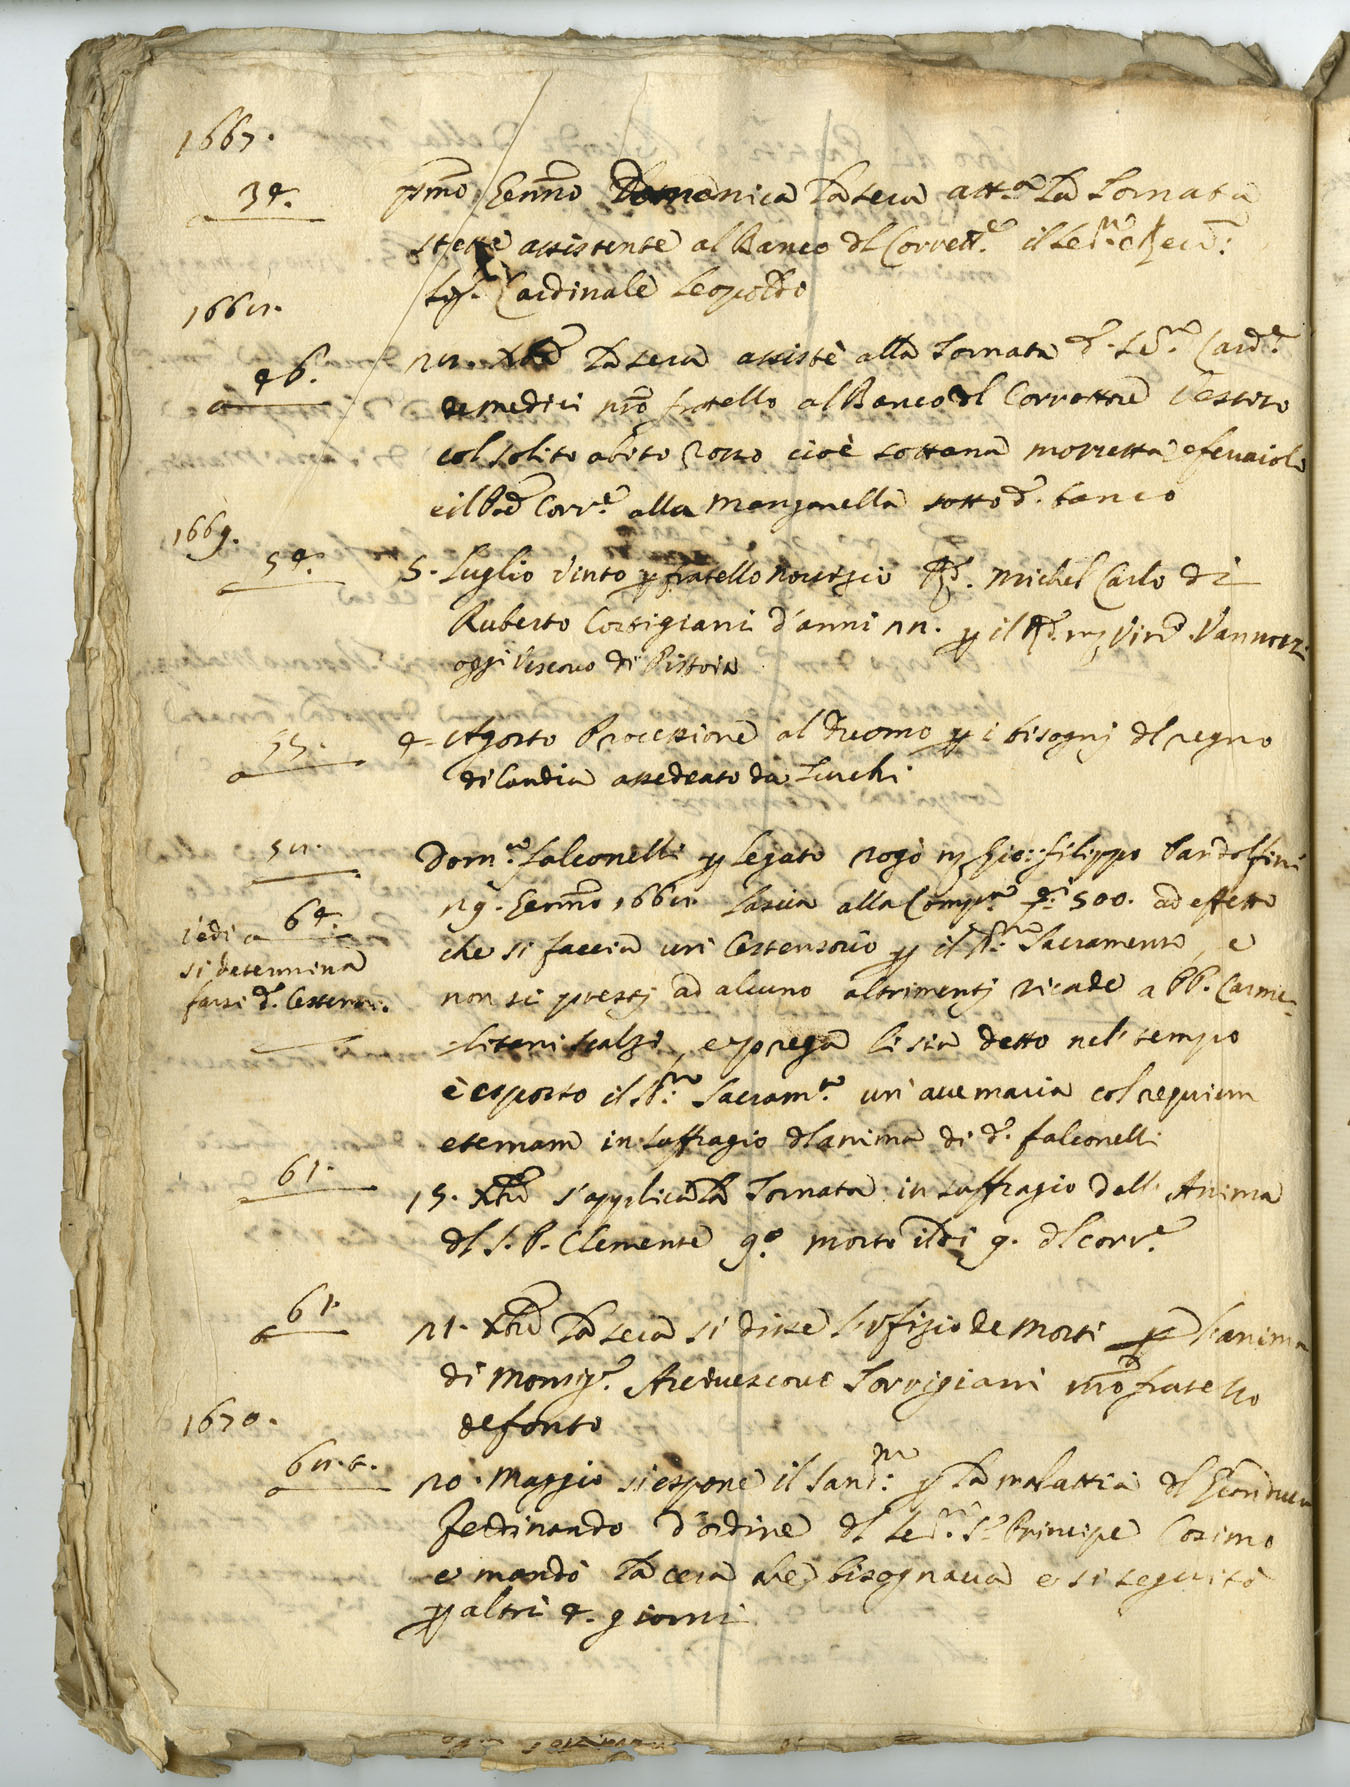 1667.
34.
p.mo Genn.o Domenica la sera att.a la Tornata
stette assistente al Banco del Corrett.e il Ser.mo e Rev.mo
Sig. Cardinale Leopoldo
1668.
46.
28. Xbre la sera assistè alla Tornata d.o Ser.mo Card.e
de medici nro fratello al Banco del Correttore vestito
col solito abito rosso cioè sottana mozzetta e feraiolo
e il Pad.e Corr.e alla manganella sotto d.o banco
1669.
54.
5. Luglio vinto p fratello novizio Sig. Michel Carlo di
Ruberto Cortigiani d'anni 22. p il
oggi Vescovo di Pistoia
55.
4. Agosto Processione al Duomo p i bisogni del regno
di Candia assediato da Turchi
58.
Dom.co Falconelli p legato rogò ms Gio: Filippo Pandolfini
29. Genn.o 1668. lascia alla Comp.a 500. ad effetto
che si faccia un Ostensorio p il SS.mo Sacramento, e
non si presti ad alcuno altrimenti ricade a PP. Carme-
=litani scalzi, e prega li sia detto nel tempo
è esposto il SS.mo Sacram.to un avemaria col requiem
eternam in suffragio del anima di d.o Falconelli
vedi a 64.
si determina
farsi d.o
61.
15. Xbre s'applica la Tornata in suffragio dell' Anima
del S. P. Clemente 9.o morto il dì 9. del corr.e
61.
21. Xbre la sera si disse l'ufizio de Morti p l'anima
di Monsig.r Arcivescovo Torrigiani nro fratello
defonto
1670.
68.
20. Maggio si espone il Sant.mo p la malattia del Granduca
Ferdinando d'ordine del Ser.mo S.r Principe Cosimo
e mandò la cera che bisognava e si seguitò
p altri 4. giorni